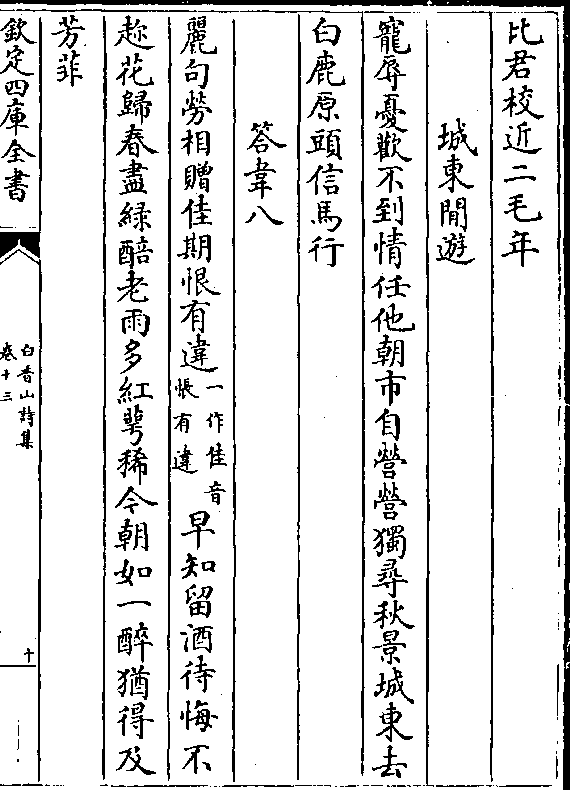 比君校近二毛年
城東閒遊
寵辱憂歡不到情任他朝市自營營獨尋秋景城東去
白鹿原頭信馬行
答韋八
麗句勞相贈佳期恨有違一作佳音悵有違早知留酒待悔不
趂花歸春盡綠醅老雨多紅萼稀今朝如一醉猶得及
芳菲
欽定四庫全書
白香山詩集
卷十三
十